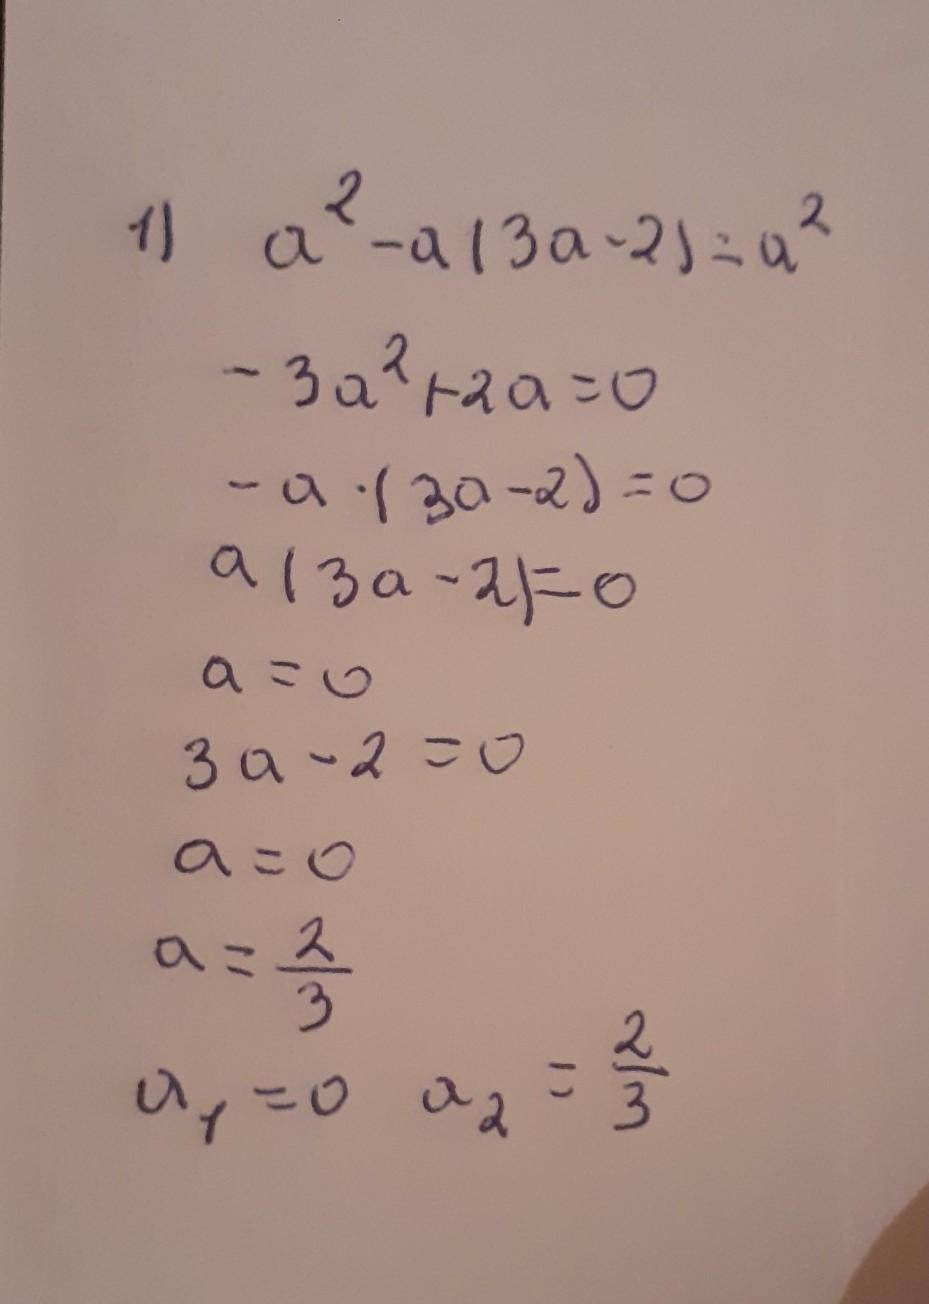 1) a² - a(3a - 2) = a²
- 3a² + 2a = 0
- a · (3a - 2) = 0
a (3a - 2) = 0
a = 0
3a - 2 = 0
a = 0
a = 2/3
a₁ = 0 a₂ = 2/3